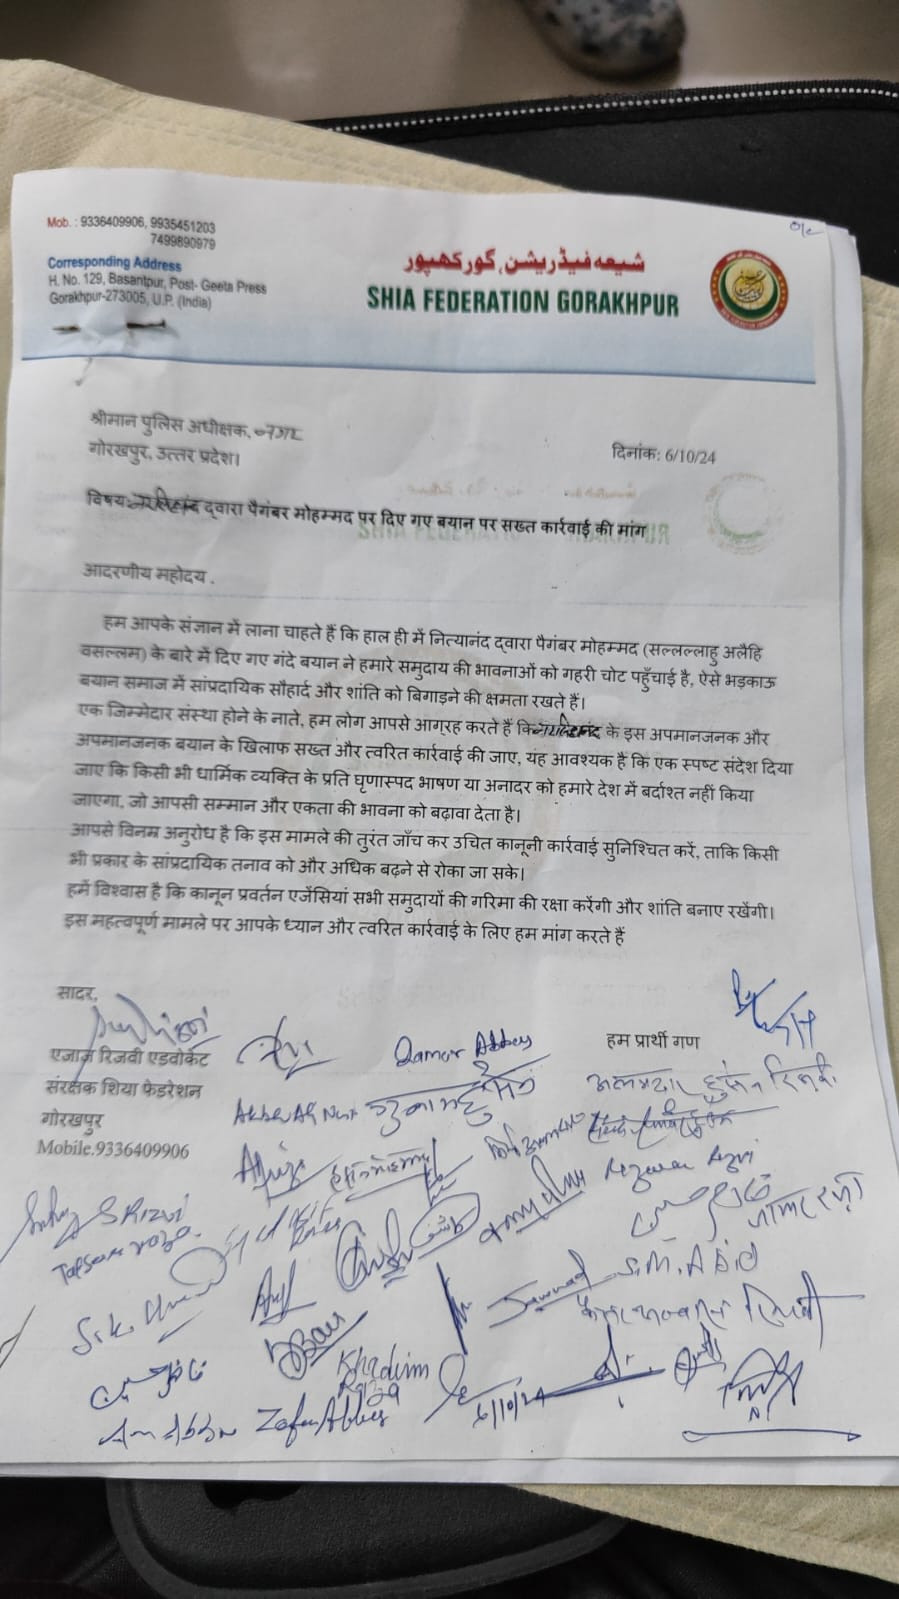 o/c
Mob. : 9336409906, 9935451203
7499890979
Corresponding Address
H. No. 129, Basantpur, Post- Geeta Press
Gorakhpur-273005, U.P. (India)
شیعہ فیڈریشن، گورکھپور
SHIA FEDERATION GORAKHPUR
श्रीमान पुलिस अधीक्षक, नगर
गोरखपुर, उत्तर प्रदेश।
दिनांक: 6/10/24
विषय: द्वारा पैगंबर मोहम्मद पर दिए गए बयान पर सख्त कार्रवाई की मांग
आदरणीय महोदय .
हम आपके संज्ञान में लाना चाहते हैं कि हाल ही में नित्यानंद द्वारा पैगंबर मोहम्मद (सल्लल्लाहु अलैहि
वसल्लम) के बारे में दिए गए गंदे बयान ने हमारे समुदाय की भावनाओं को गहरी चोट पहुँचाई है, ऐसे भड़काऊ
बयान समाज में सांप्रदायिक सौहार्द और शांति को बिगाड़ने की क्षमता रखते हैं।
एक जिम्मेदार संस्था होने के नाते, हम लोग आपसे आग्रह करते हैं कि के इस अपमानजनक और
अपमानजनक बयान के खिलाफ सख्त और त्वरित कार्रवाई की जाए, यह आवश्यक है कि एक स्पष्ट संदेश दिया
जाए कि किसी भी धार्मिक व्यक्ति के प्रति घृणास्पद भाषण या अनादर को हमारे देश में बर्दाश्त नहीं किया
जाएगा, जो आपसी सम्मान और एकता की भावना को बढ़ावा देता है।
आपसे विनम्र अनुरोध है कि इस मामले की तुरंत जाँच कर उचित कानूनी कार्रवाई सुनिश्चित करें, ताकि किसी
भी प्रकार के सांप्रदायिक तनाव को और अधिक बढ़ने से रोका जा सके।
हमें विश्वास है कि कानून प्रवर्तन एजेंसियां सभी समुदायों की गरिमा की रक्षा करेंगी और शांति बनाए रखेंगी।
इस महत्वपूर्ण मामले पर आपके ध्यान और त्वरित कार्रवाई के लिए हम मांग करते हैं
सादर,
एजाज़ रिजवी एडवोकेट
संरक्षक शिया फेडरेशन
गोरखपुर
Mobile.9336409906
हम प्रार्थी गण
Qamar Abbas
S Rizvi
Rizvi
S.M. ABID
Jawwad
Khadim
Raza
Zafar Abbas
6/10/24